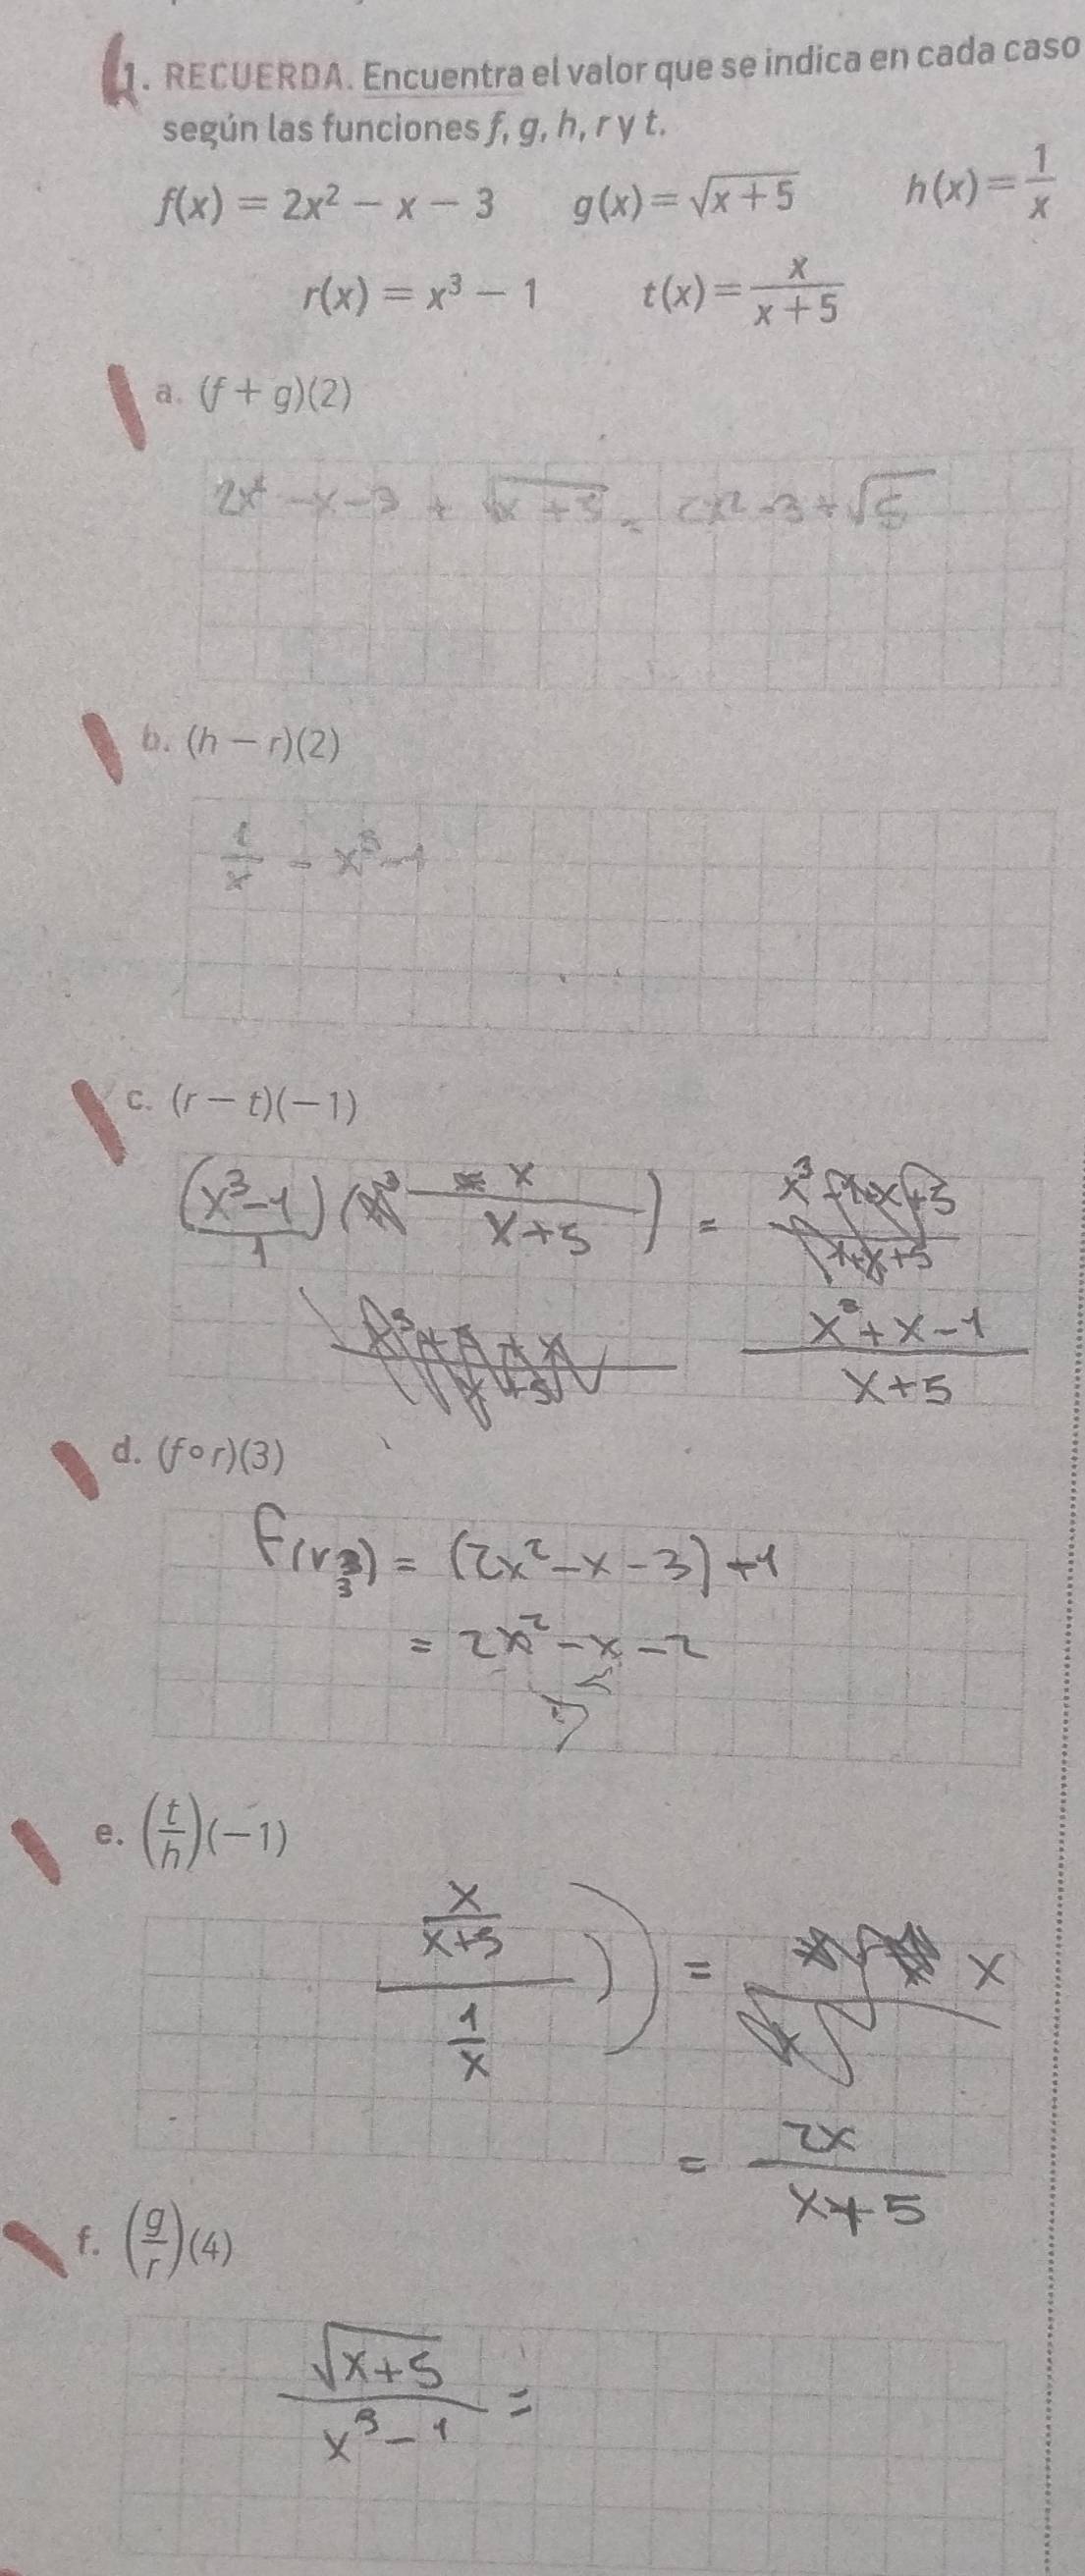 1. RECUERDA. Encuentra el valor que se indica en cada caso
según las funciones f, g, h, r y t.
f(x) = 2x² − x − 3   g(x) = √(x + 5)   h(x) = 1/x
r(x) = x³ − 1   t(x) = x/(x + 5)
a. (f + g)(2)
2x² − x − 3 + √(x + 5) = 2x² − 3 + √5
b. (h − r)(2)
1/x − x³ − 1
c. (r − t)(−1)
(x³ − 1)/1 ( − x/(x + 5)) =
(x³ + x − 1)/(x + 5)
d. (f ∘ r)(3)
f(r 3) = (2x² − x − 3) + 1
= 2x² − x − 2
e. (t/h)(−1)
(x/(x + 5))/(1/x) )) = x
= 2x/(x + 5)
f. (g/r)(4)
√(x + 5)/(x³ − 1) =